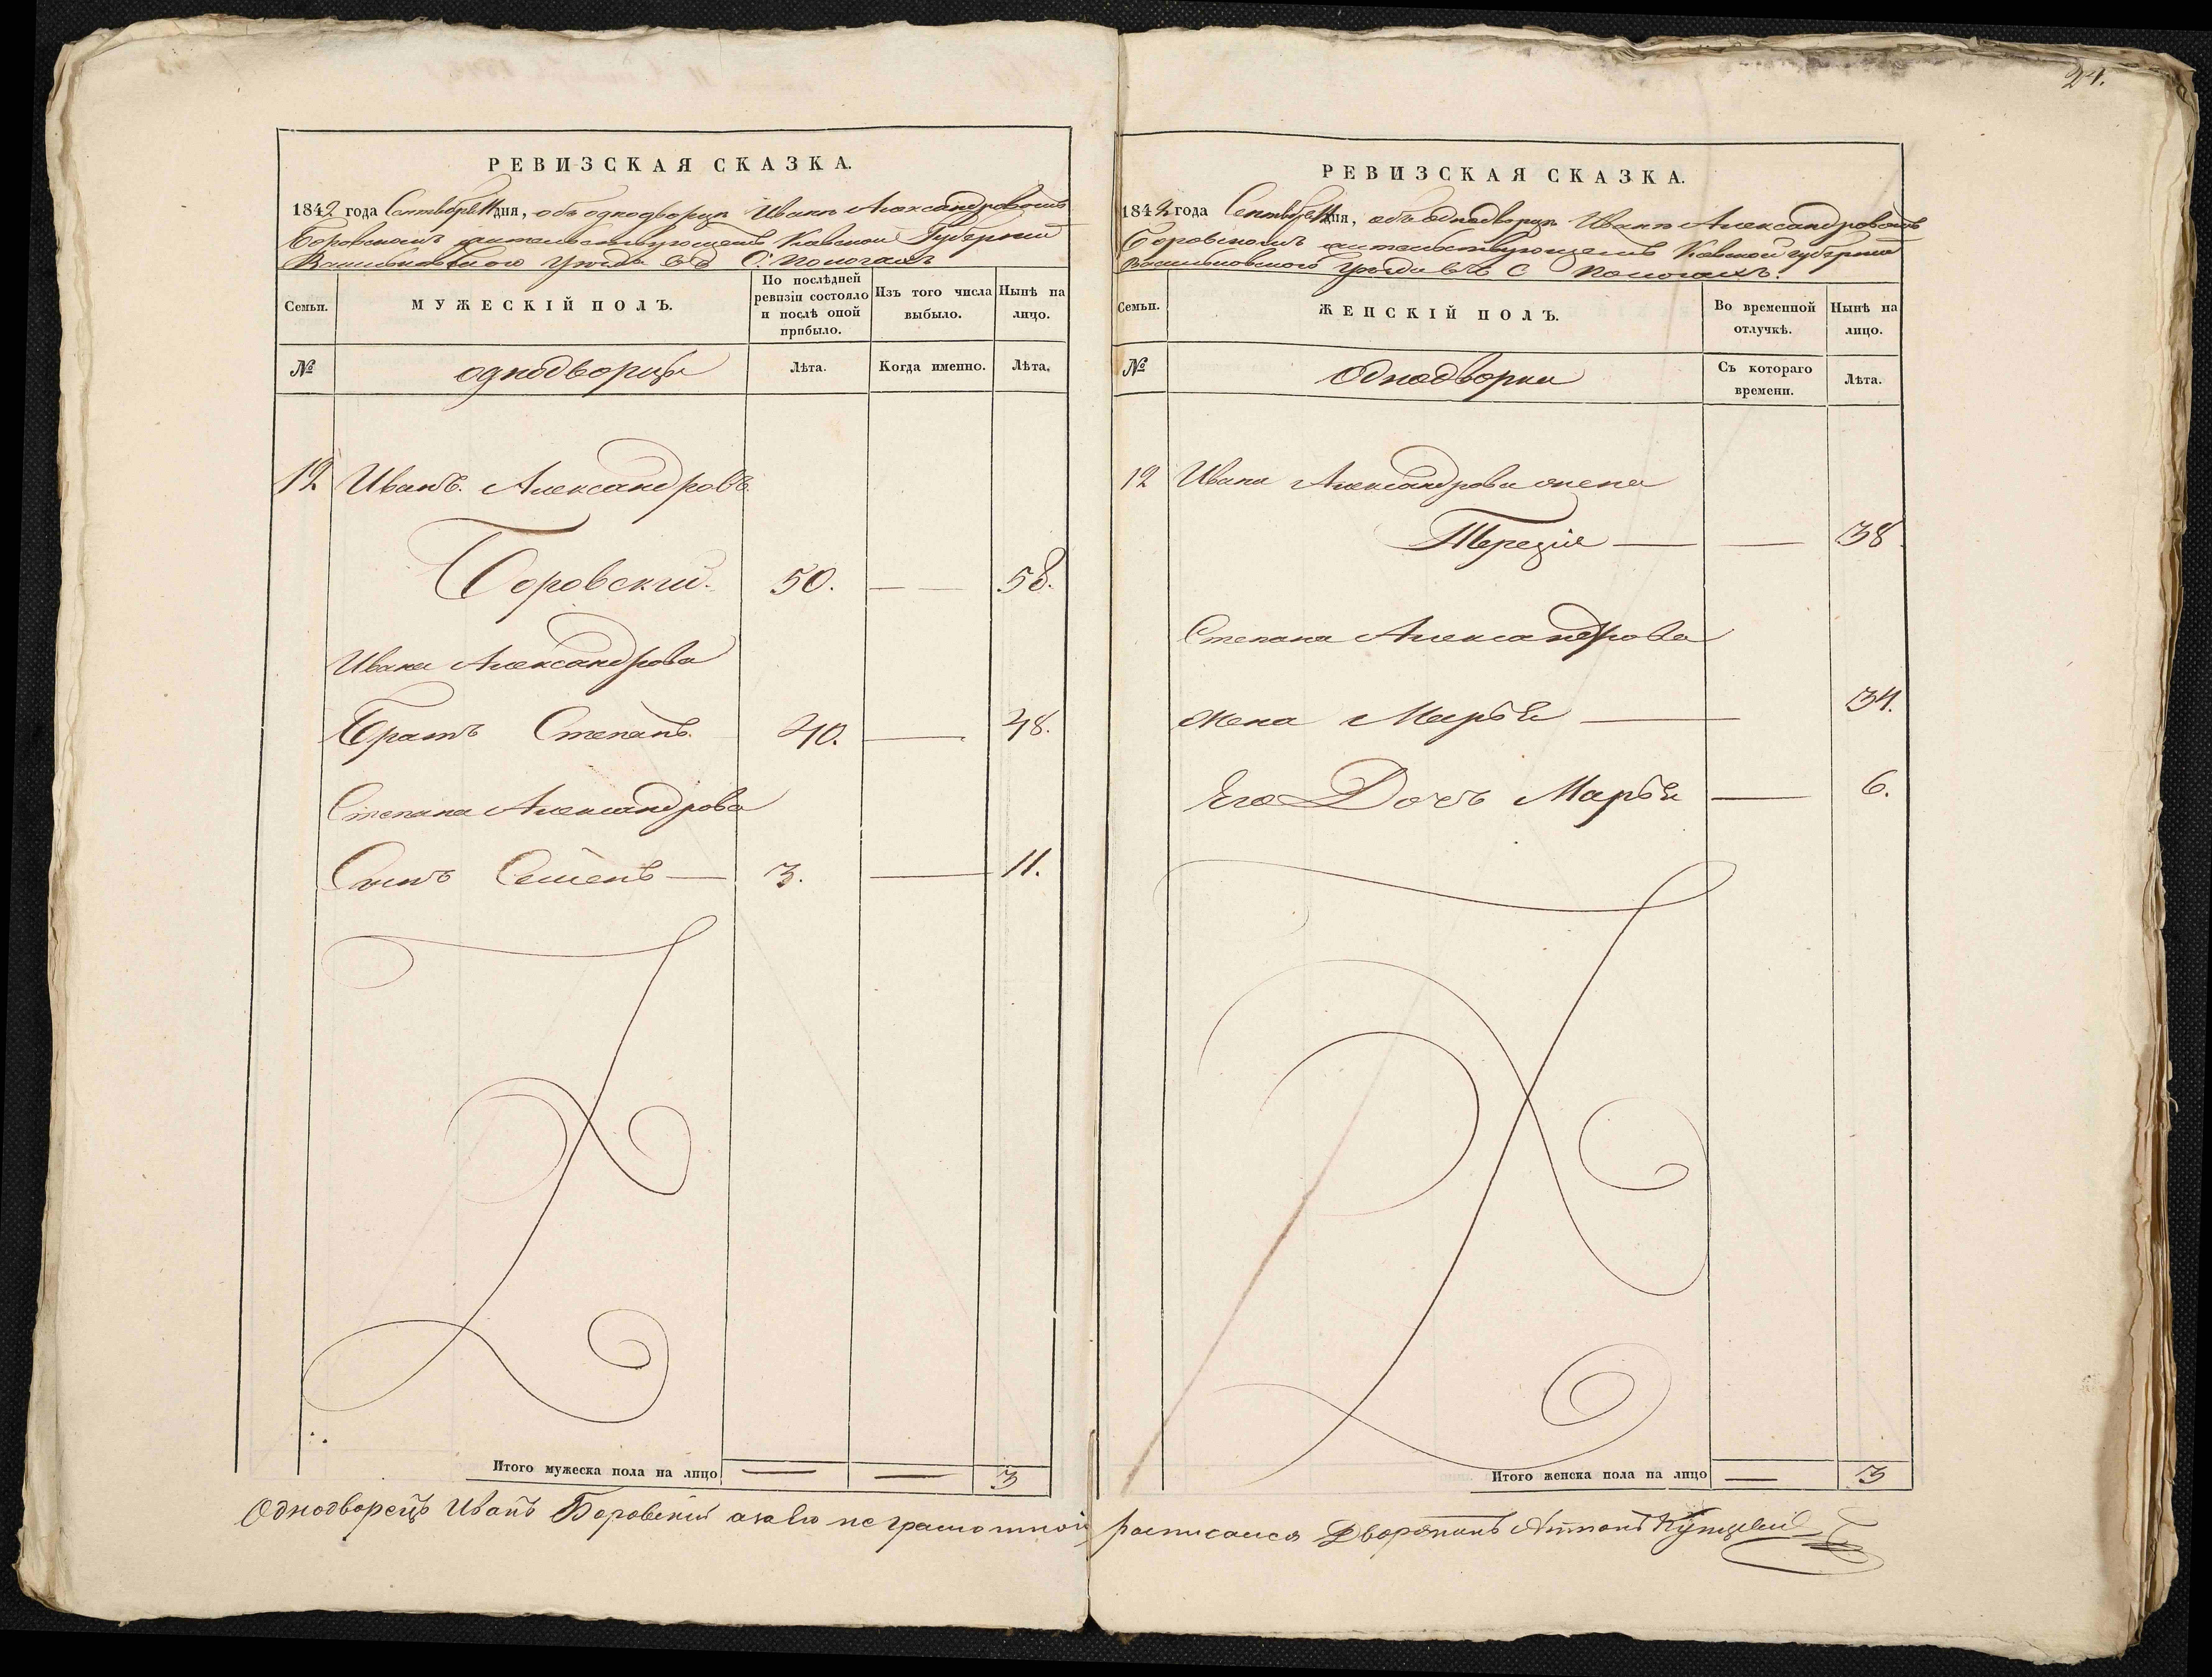 24.
РЕВИЗСКАЯ СКАЗКА.
1842 года Сентября 11 дня, объ однодворцѣ Иванѣ Александровомъ
Боровскомъ жительствующемъ Кіевской Губерніи
Васильковскаго Уѣзда въ С. Пологахъ
Семьи.
МУЖЕСКІЙ ПОЛЪ.
По послѣдней ревизіи состояло и послѣ оной прибыло.
Изъ того числа выбыло.
Нынѣ на лицо.
№
однодворцы
Лѣта.
Когда именно.
Лѣта.
12 Иванъ Александровъ
Боровский. 50. — — 58.
Ивана Александрова
Братъ Степанъ. 40. — 48.
Степана Александрова
Сынъ Семенъ — 3. — 11.
Итого мужеска пола на лицо — — 3
Однодворецъ Иванъ Боровский а за его неграмотной
РЕВИЗСКАЯ СКАЗКА.
1842 года Сентября 11 дня, объ однодворцѣ Иванѣ Александровомъ
Боровскомъ жительствующемъ Кіевской губерніи
Васильковскаго Уѣзда въ С Пологахъ.
Семьи.
ЖЕНСКІЙ ПОЛЪ.
Во временной отлучкѣ.
Нынѣ на лицо.
№
Однодворки
Съ котораго времени.
Лѣта.
12 Ивана Александрова жена
Терезия — — 38
Степана Александрова
жена Марья — 34.
Его Дочь Марья — 6.
Итого женска пола на лицо — 3
росписался Дворянинъ Антонъ